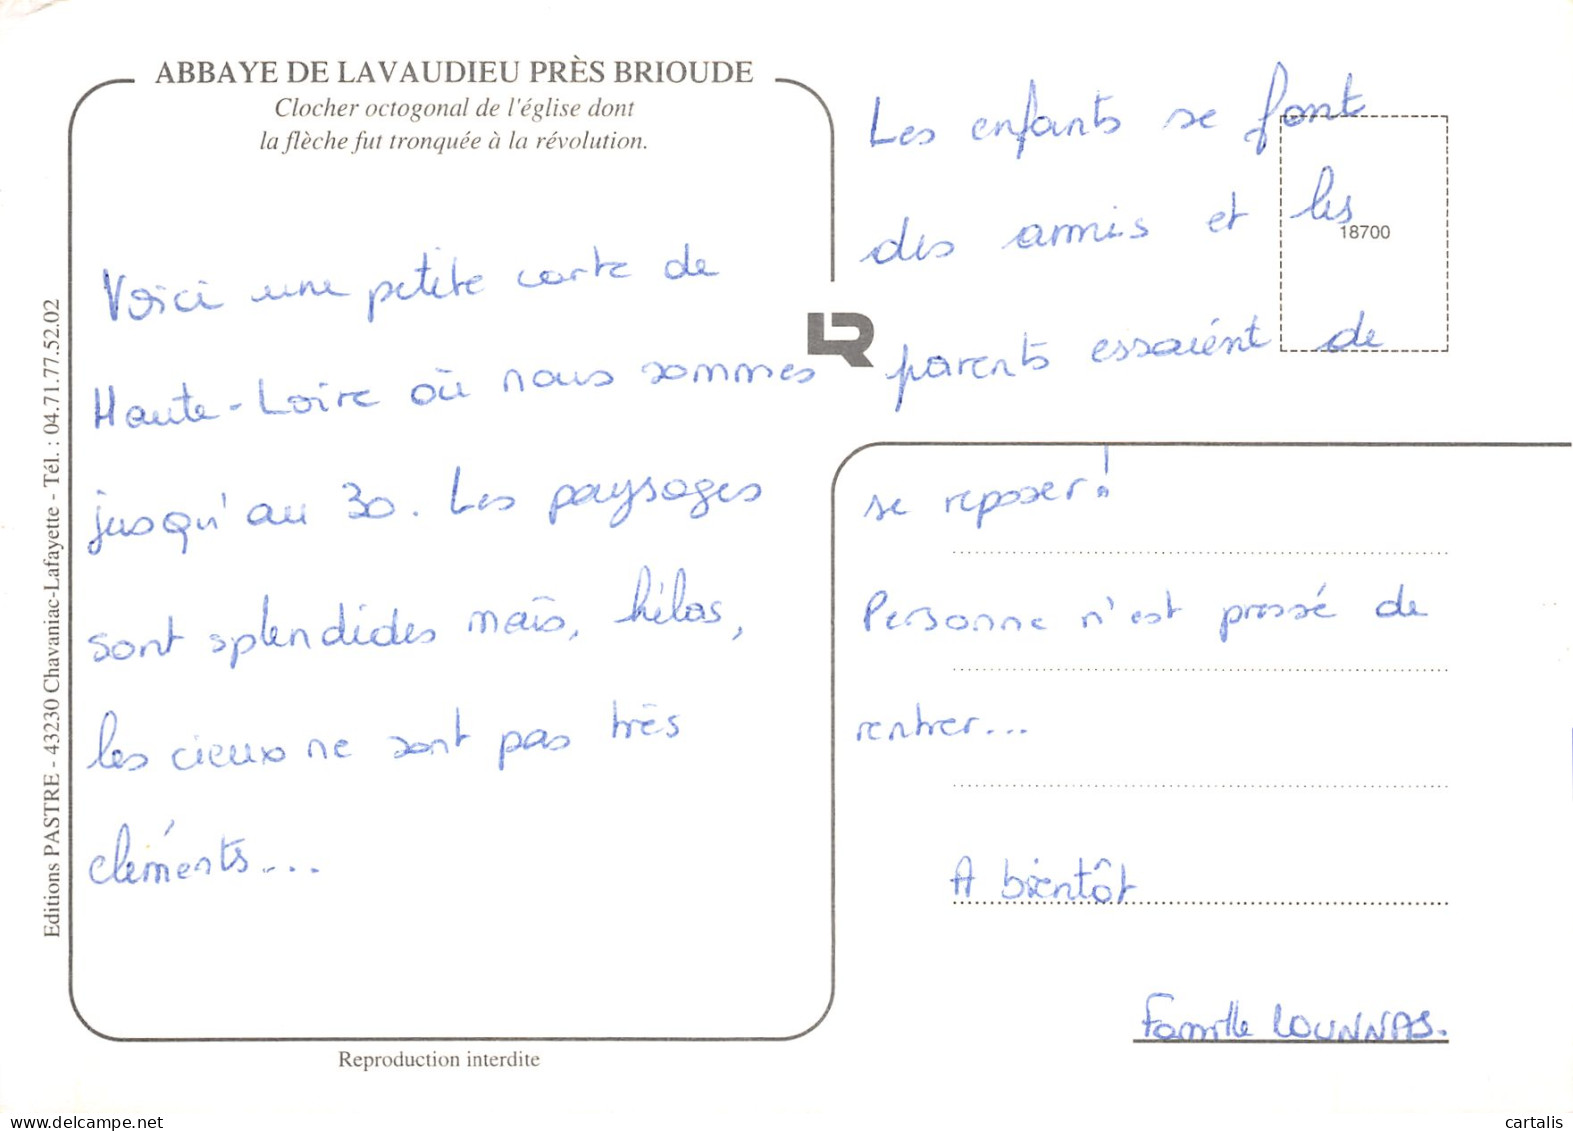 ABBAYE DE LAVAUDIEU PRÈS BRIOUDE
Clocher octogonal de l'église dont
la flèche fut tronquée à la révolution.
Voici une petite carte de
Haute-Loire où nous sommes
jusqu'au 30. Les paysages
sont splendides mais, hélas,
les cieux ne sont pas très
cléments...
Les enfants se font
des amis et les
parents essaient de
se reposer!
Personne n'est pressé de
rentrer...
A bientôt
Famille LOUNNAS.
18700
Editions PASTRE - 43230 Chavaniac-Lafayette - Tél. : 04.71.77.52.02
Reproduction interdite
cartalis